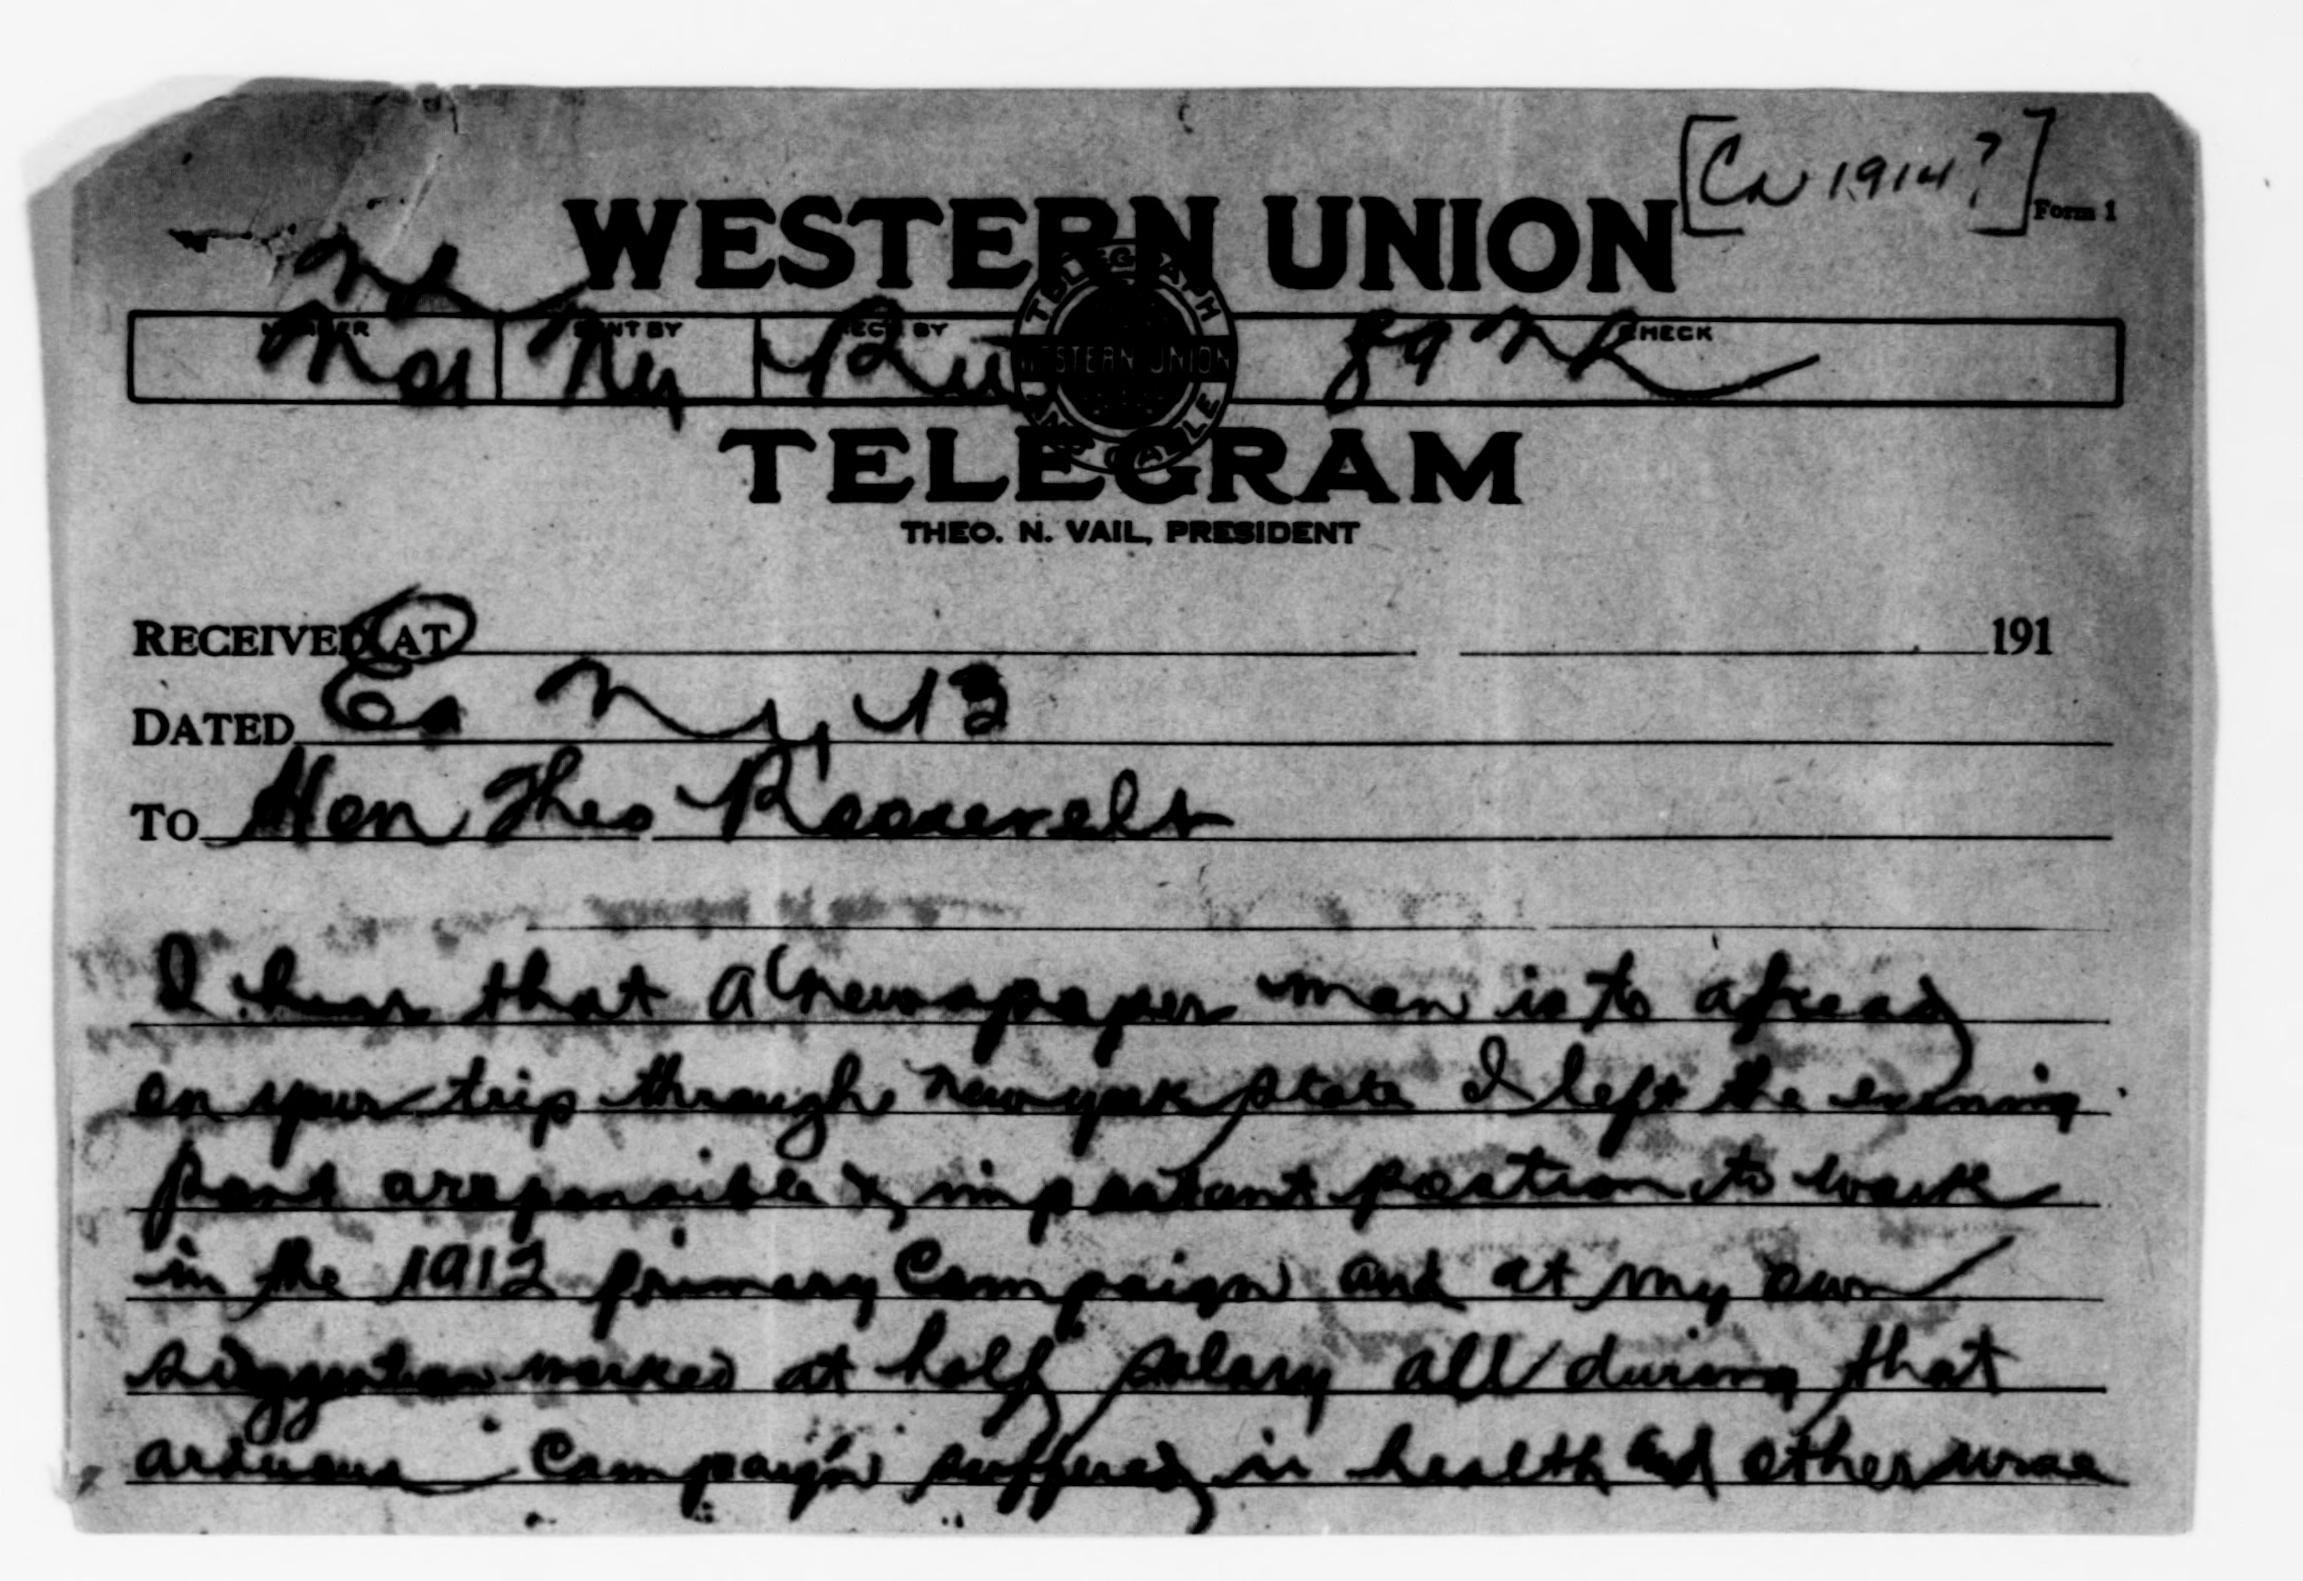 [Ca 1914?]
WESTERN UNION
Form 1
NL
NUMBER SENT BY REC'D BY CHECK
Ny 89 NL
TELEGRAPH AND CABLE
WESTERN UNION
TELEGRAM
THEO. N. VAIL, PRESIDENT
RECEIVED AT 191
DATED Ny 13
TO Hon Theo Roosevelt
I hear that a newspaper man is to
on your trip through New york state I left the evening
post a responsible & important position to work
in the 1912 primary Campaign and at my own
suggestion worked at half salary all during that
arduous Campaign suffered in health and otherwise